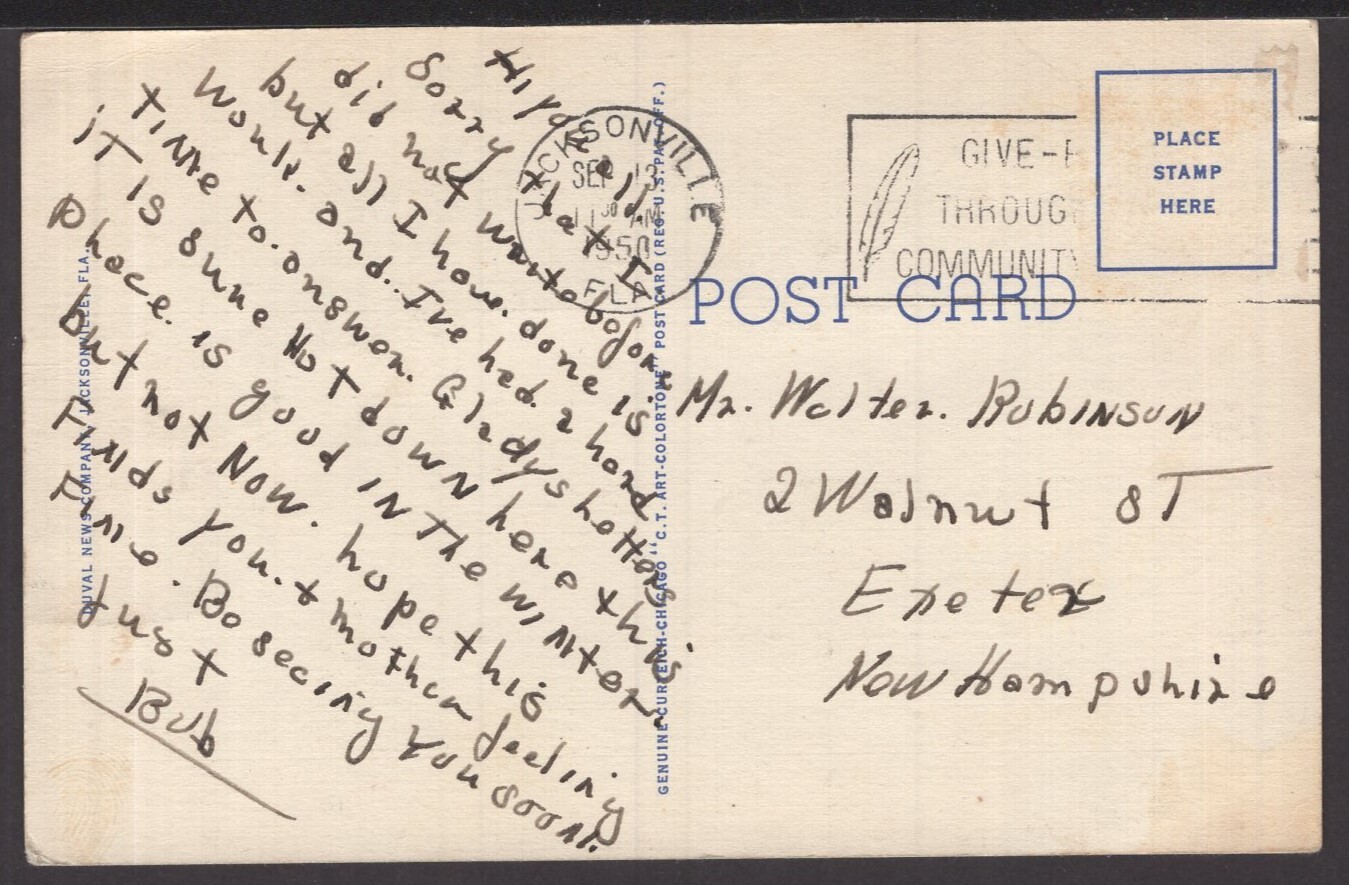 Hiya all.
Sorry that I
did not write before
but all I have done is
work. and. I've had. a hard
time to. answer. Gladys letters
it is sure Hot down here this
Place. is good in The winter.
but not Now. hope this
Finds you. + mother feeling
Fine. Be seeing you soon.
Just
Bub
JACKSONVILLE
SEP 13
11 30 AM
1950
FLA
GIVE-
THROUG
COMMUNITY
PLACE
STAMP
HERE
POST CARD
Mr. Walter. Robinson
2 Walnut ST
Exeter
New Hampshire
DUVAL NEWS COMPANY, JACKSONVILLE, FLA.
GENUINE CURTEICH-CHICAGO "C.T. ART-COLORTONE" POST CARD (REG. U.S. PAT. OFF.)